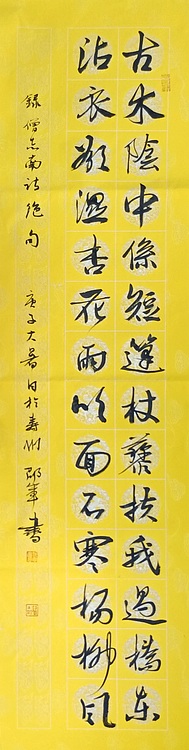 古木陰中係短篷杖藜扶我過橋東
沾衣欲濕杏花雨吹面不寒楊柳風
錄僧志南詩絕句 庚子大暑日於壽州 邵軍書